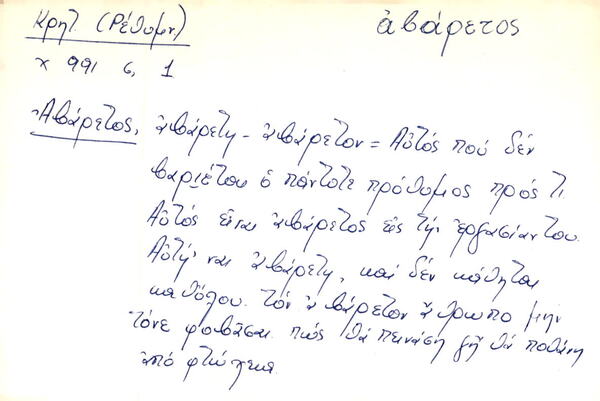 Κρητ. (Ρέθυμν.)
ἀβάρετος
χ 991 6, 1
Ἀβάρετος, ἀβάρετη - ἀβάρετον = Αὐτός πού δέν
βαριέται ὁ πάντοτε πρόθυμος πρός τι
Αὐτός εἶναι ἀβάρετος εἰς τήν ἐργασίαν του.
Αὐτή ναι ἀβάρετη, καί δέν κάθηται
καθόλου. τόν ἀβάρετον ἄθρωπο μην
τόνε φοβᾶσαι πώς θά πεινάση γῆ θά ποθάνη
ἀπό φτώχεια